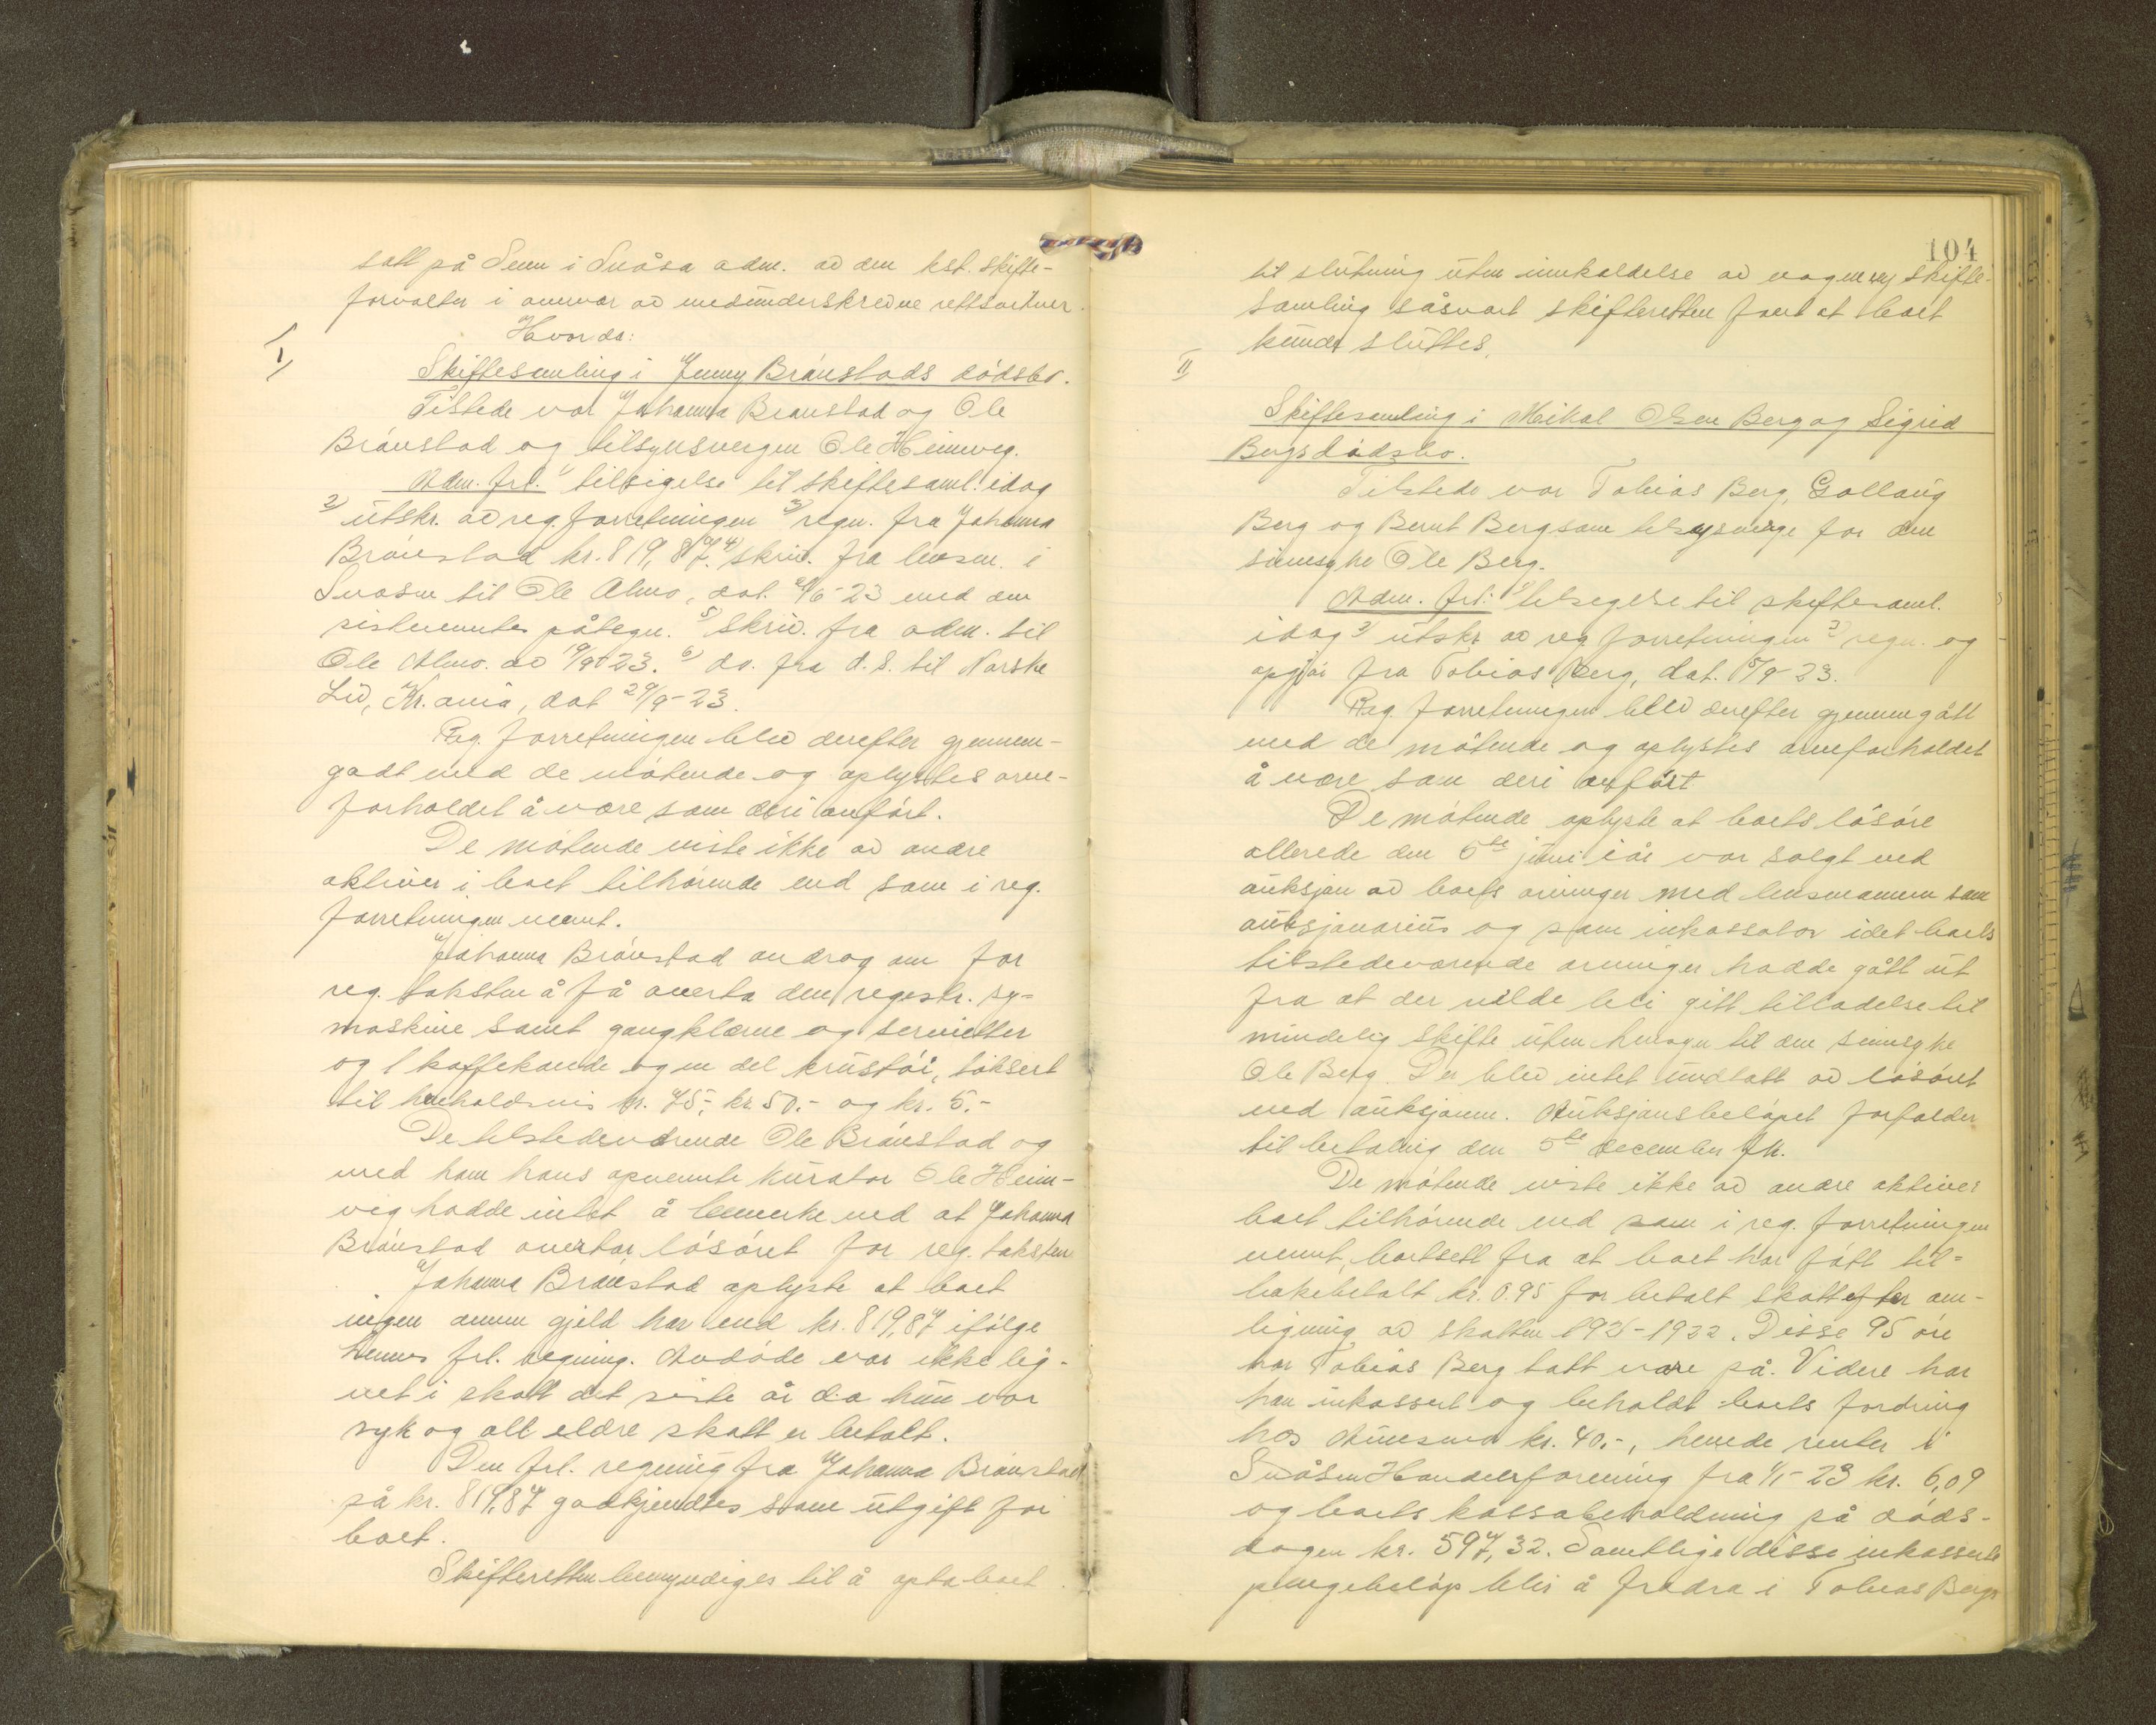 satt på Seem i Snåsa adm. av den kst. skifte-
forvalter i overvær av medunderskrevne rettsvitner.
Hvorda:
I,
Skiftesamling i Jenny Brånstads dødsbo.
Tilstede var Johanna Brånstad og Ole
Brånstad og tilsynsvergen Ole Heimveg.
Adm. frl. 1) tilsigelse til skiftesaml. idag
2) utskr. av reg. forretningen 3) regn. fra Johanna
Brånstad kr. 819,87. 4) skriv. fra lensm. i
Snåsen til Ole Almo, dat. 6-23 med den
sistnevntes påtegn. 5) skriv. fra adm. til
Ole Almo av 19/9 23. 6) do. fra d. s. til Norske
Liv, Kr.ania, dat 29/9-23.
Reg. forretningen blev derefter gjennem-
gådt med de møtende og oplystes arve-
forholdet å være som deri anført.
De møtende viste ikke av andre
aktiver i boet tilhørende end som i reg.
forretningen nevnt.
Johanna Brånstad androg om for
reg. taksten å få overta den registr. sy-
maskine samt gangklærne og servietter
og 1 kaffekande og en del krustøi, taksert
til henholdsvis kr. 75,- kr. 50.- og kr. 5.-
De tilstedeværende Ole Brånstad og
med ham hans opnevnte kurator Ole Heim-
veg hadde intet å bemerke ved at Johanna
Brånstad overtar løsøret for reg. taksten
Johanna Brånstad oplyste at boet
ingen annen gjeld har end kr. 819,87 ifølge
hennes frl. regning. Avdøde var ikke lig-
net i skatt det siste år da hun var
syk og all eldre skatt er betalt.
Den frl. regning fra Johanna Brånstad
på kr. 819,87 godkjendtes som utgift for
boet.
Skifteretten bemyndiges til å opta boet
104
til slutning uten innkaldelse av nogen ny skifte-
samling såsnart skifteretten fant at boet
kunde sluttes.
II
Skiftesamling i Mikal Olsen Berg og Sigrid
Bergs dødsbo.
Tilstede var Tobias Berg, Gollaug
Berg og Bernt Berg som tilsynsverge for den
sinnsyke Ole Berg.
Adm. frl: 1) tilsigelse til skiftesaml.
idag 2) utskr av reg forretningen 3) regn. og
opgjør fra Tobias Berg, dat. 5/9-23.
Reg. forretningen blev derefter gjennemgått
med de møtende og oplystes arveforholdet
å være som deri anført
De møtende oplyste at boets løsøre
allerede den 5te juni iår var solgt ved
auksjon av boets arvinger med lensmannen som
auksjonarius og som inkassator idet boets
tilstedeværende arvinger hadde gått ut
fra at der vilde bli gitt tilladelse til
mindelig skifte uten hensyn til den sinnsyke
Ole Berg. Der blev intet undtatt av løsøret
ved auksjonen. Auksjonsbeløpet forfalder
til betaling den 5te december fk.
De møtende viste ikke av andre aktiver
boet tilhørende end som i reg. forretningen
nevnt, bortsett fra at boet har fått til-
bakebetalt kr. 0.95 for betalt skatt efter om-
ligning av skatten 1921-1922. Disse 95 øre
har Tobias Berg tatt vare på. Videre har
han inkassert og beholdt boets fordring
hos kr. 40.-, hevede renter i
Snåsen Handelsforening fra 1/1-23 kr. 6,09
og boets kassabeholdning på døds-
dagen kr. 597,32. Samtlige disse inkasserte
pengebeløp blir å fradra i Tobias Bergs